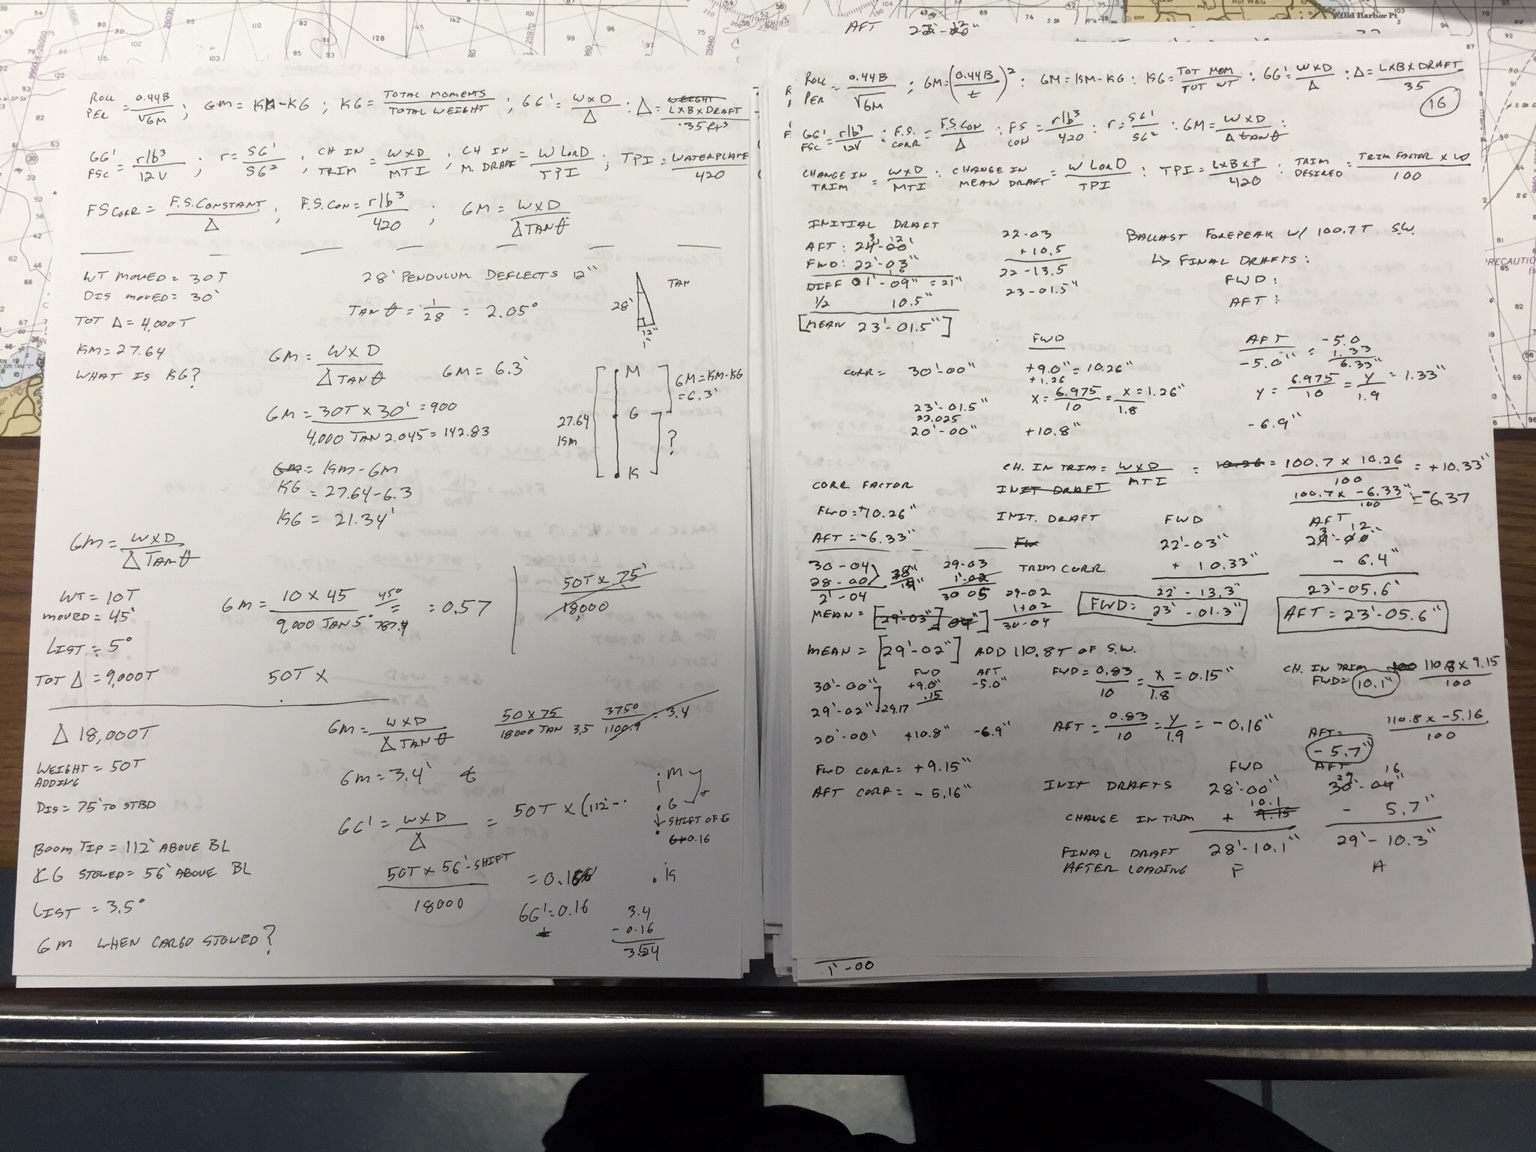 Old Harbor Pt
AFT 22'-10"
ROLL PER = 0.44B / √GM ; GM = KM-KG ; KG = TOTAL MOMENTS / TOTAL WEIGHT ; GG' = WXD / Δ ; Δ = LXBXDRAFT / 35 ft³
GG' FSC = rlb³ / 12V ; r = SG' / SG² ; CH IN TRIM = WXD / MTI ; CH IN M DRAFT = W L or D / TPI ; TPI = WATERPLANE / 420
FS CORR = F.S. CONSTANT / Δ ; F.S. CON = rlb³ / 420 ; GM = WXD / Δ TAN θ
WT MOVED = 30T
DIS MOVED = 30'
TOT Δ = 4,000T
KM = 27.64
WHAT IS KG?
28' PENDULUM DEFLECTS 12"
TAN θ = 1/28 = 2.05°
28'
12"
1'
TAN
GM = WXD / Δ TAN θ GM = 6.3'
GM = 30T X 30' = 900 / 4,000 TAN 2.045 = 142.83
GM = KM - GM
KG = 27.64 - 6.3
KG = 21.34'
M
G
K
27.64 KM
GM = KM-KG = 6.3'
?
GM = WXD / Δ TAN θ
WT = 10T
MOVED = 45'
LIST = 5°
TOT Δ = 9,000T
GM = 10 X 45 / 9,000 TAN 5° = 450 / 787.4 = 0.57
50T X 75' / 18,000
50T X
Δ 18,000T
WEIGHT = 50T
ADDING
DIS = 75' TO STBD
BOOM TIP = 112' ABOVE BL
KG STOWED = 56' ABOVE BL
LIST = 3.5°
GM WHEN CARGO STOWED?
GM = WXD / Δ TAN θ 50 X 75 / 18000 TAN 3.5 3750 / 1100.9 = 3.4
GM = 3.4'
GG' = WXD / Δ = 50T X (112'-
50T X 56'-SHIFT / 18000 = 0.16
GG' = 0.16
M
G
SHIFT OF G
0.16
K
3.4
- 0.16
3.24
ROLL PER = 0.44B / √GM ; GM = (0.44B / t)² : GM = KM-KG : KG = TOT MOM / TOT WT : GG' = WXD / Δ ; Δ = LXBXDRAFT / 35
16
GG' FSC = rlb³ / 12V : F.S. CORR = F.S. CON / Δ : FS CON = rlb³ / 420 : r = SG' / SG² : GM = WXD / Δ TAN θ :
CHANGE IN TRIM = WXD / MTI : CHANGE IN MEAN DRAFT = W L or D / TPI : TPI = LXBXP / 420 : TRIM DESIRED = TRIM FACTOR X / 100
INITIAL DRAFT
AFT : 24'-00"
FWD : 22'-03"
DIFF 01'-09" = 21"
1/2 10.5"
[MEAN 23'-01.5"]
22-03
+ 10.5
22-13.5
23-01.5"
BALLAST FOREPEAK W/ 100.7T S.W.
↳ FINAL DRAFTS :
FWD :
AFT :
FWD AFT
CORR = 30'-00" +9.0" = 10.26"
+1.26
23'-01.5" X = 6.975 / 10 = X / 1.8 = 1.26"
20'-00" +10.8" -6.9"
-5.0" = -5.0
1.33
6.33"
Y = 6.975 / 10 = Y / 1.9 = 1.33"
CORR FACTOR
FWD = +10.26"
AFT = -6.33"
CH. IN TRIM = WXD / MTI = 10.26 = 100.7 X 10.26 / 100 = +10.33"
INIT DRAFT
100.7 X -6.33" / 100 = -6.37
INIT. DRAFT FWD AFT
22'-03" 24'-00"
TRIM CORR + 10.33" - 6.4"
22'-13.3" 23'-05.6"
FWD: 23'-01.3" AFT = 23'-05.6"
30-04
28-00
2'-04
29-03
1'-02
30 05
29-02
1+02
30-04
MEAN = [29'-03"]
MEAN = [29'-02"] ADD 110.8T OF S.W.
FWD AFT
30'-00" +9.0" -5.0"
.15
29'-02" 29.17
20'-00' +10.8" -6.9"
FWD = 0.83 / 10 = X / 1.8 = 0.15"
AFT = 0.83 / 10 = Y / 1.9 = -0.16"
CH. IN TRIM
FWD = 110.8 X 9.15 / 100
10.1"
AFT = 110.8 X -5.16 / 100
-5.7"
FWD CORR = +9.15"
AFT CORR = -5.16"
FWD AFT
INIT DRAFTS 28'-00" 30'-04"
CHANGE IN TRIM + 10.1 - 5.7"
FINAL DRAFT AFTER LOADING 28'-10.1" 29'-10.3"
F A
1'-00